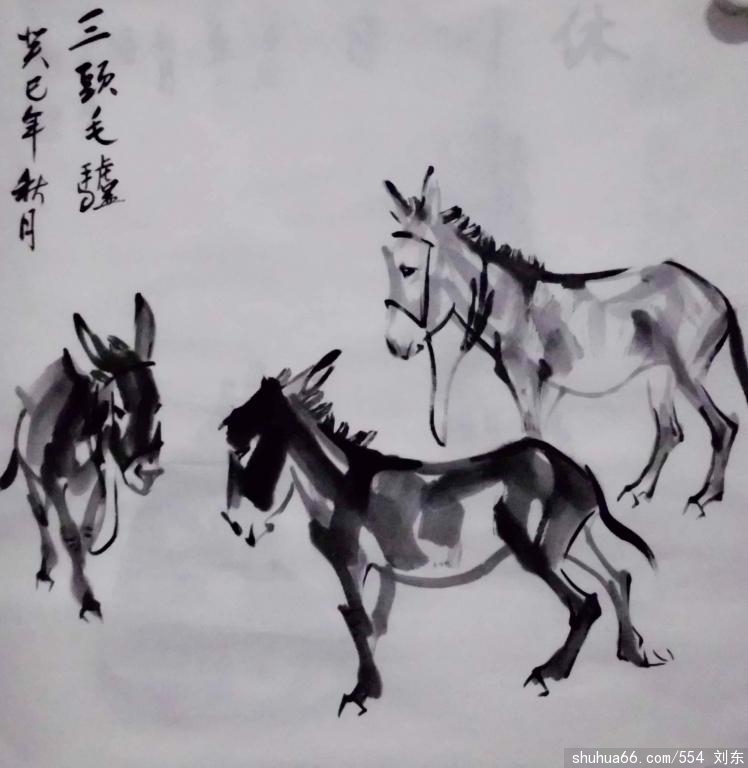 三頭毛驢
癸巳年 秋月
shuhua66.com/554 刘东